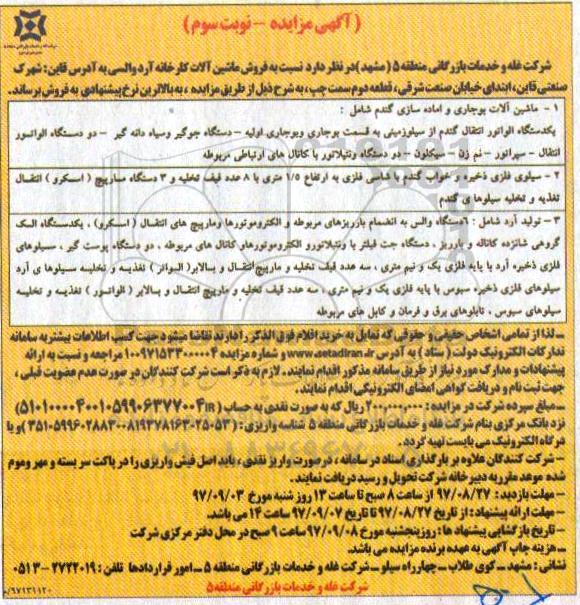 (آگهی مزایده - نوبت سوم)
شرکت غله و خدمات بازرگانی منطقه ۵ (مشهد) در نظر دارد نسبت به فروش ماشین آلات کارخانه آرد والسی به آدرس قاین: شهرک
صنعتی قاین، ابتدای خیابان صنعت شرقی، قطعه دوم سمت چپ، به شرح ذیل از طریق مزایده، به بالاترین نرخ پیشنهادی به فروش برساند.
۱ - ماشین آلات بوجاری و اماده سازی گندم شامل :
یکدستگاه الواتور انتقال گندم از سیلوزمینی به قسمت بوجاری وبوجاری اولیه - دستگاه جوگیر وسیاه دانه گیر - دو دستگاه الواتور
انتقال - سپراتور - نم زن - سیکلون - دو دستگاه ونتیلاتور با کانال های ارتباطی مربوطه
۲ - سیلوی فلزی ذخیره و خواب گندم با شاسی فلزی به ارتفاع ۱/۵ متری با ۸ عدد قیف تخلیه و ۳ دستگاه مارپیچ ( اسکرو ) انتقال
تغذیه و تخلیه سیلوها ی گندم
۳ - تولید آرد شامل : ۶دستگاه والس به انضمام بازریزهای مربوطه و الکتروموتورها ومارپیچ های انتقال ( اسکرو) ، یکدستگاه الک
گروهی شانزده کاناله و باریز ، دستگاه جت فیلتر با ونتیلاتورو الکتروموتورهاو کانال های مربوطه ، دو دستگاه پوست گیر ، سیلوهای
فلزی ذخیره آرد با پایه فلزی یک و نیم متری ، سه عدد قیف تخلیه و مارپیچ انتقال و بالابر( الواتر ) تغذیه و تخلیه سیلوها ی آرد
سیلوهای فلزی ذخیره سبوس با پایه فلزی یک و نیم متری ، سه عدد قیف تخلیه و مارپیچ انتقال و بالابر ( الواتور ) تغذیه و تخلیه
سیلوهای سبوس ، تابلوهای برق و فرمان و کابل های مربوطه
ـ لذا از تمامی اشخاص حقیقی و حقوقی که تمایل به خرید اقلام فوق الذکر را دارند تقاضا میشود جهت کسب اطلاعات بیشتر به سامانه
تدارکات الکترونیک دولت ( ستاد ) به آدرس www.setadiran.ir و شماره مزایده ۱۰۰۹۷۱۵۳۳۰۰۰۰۰۴ مراجعه و نسبت به ارائه
پیشنهادات و مدارک مورد نیاز از طریق سامانه مذکور اقدام نمایند . لازم به ذکر است شرکت کنندگان در صورت عدم عضویت قبلی ،
جهت ثبت نام و دریافت گواهی امضای الکترونیکی اقدام نمایند.
ـ مبلغ سپرده شرکت در مزایده : ریال که به صورت نقدی به حساب
نزد بانک مرکزی بنام شرکت غله و خدمات بازرگانی منطقه ۵ شناسه واریزی : و یا
درگاه الکترونیک می بایست تهیه گردد.
ـ شرکت کنندگان علاوه بر بارگذاری اسناد در سامانه ، در صورت واریز نقدی ، باید اصل فیش واریزی را در پاکت سر بسته و مهر وموم
شده موعد مقرر به دبیرخانه شرکت تحویل و رسید دریافت نمایند.
ـ مهلت بازدید : ۹۷/۰۸/۲۷ از ساعت ۸ صبح تا ساعت ۱۳ روز شنبه مورخ ۹۷/۰۹/۰۳
ـ مهلت ارائه پیشنهاد : از تاریخ ۹۷/۰۸/۲۷ تا تاریخ ۹۷/۰۹/۰۷ ساعت ۱۴ می باشد.
ـ تاریخ بازگشایی پیشنهاد ها : روز پنجشنبه مورخ ۹۷/۰۹/۰۸ ساعت ۹ صبح در محل دفتر مرکزی شرکت
ـ هزینه چاپ آگهی به عهده برنده مزایده می باشد.
نشانی : مشهد ـ کوی طلاب ـ چهارراه سیلو ـ شرکت غله و خدمات بازرگانی منطقه ۵ ـ امور قراردادها تلفن : ۲۷۲۲۰۱۹ - ۰۵۱۳
شرکت غله و خدمات بازرگانی منطقه ۵